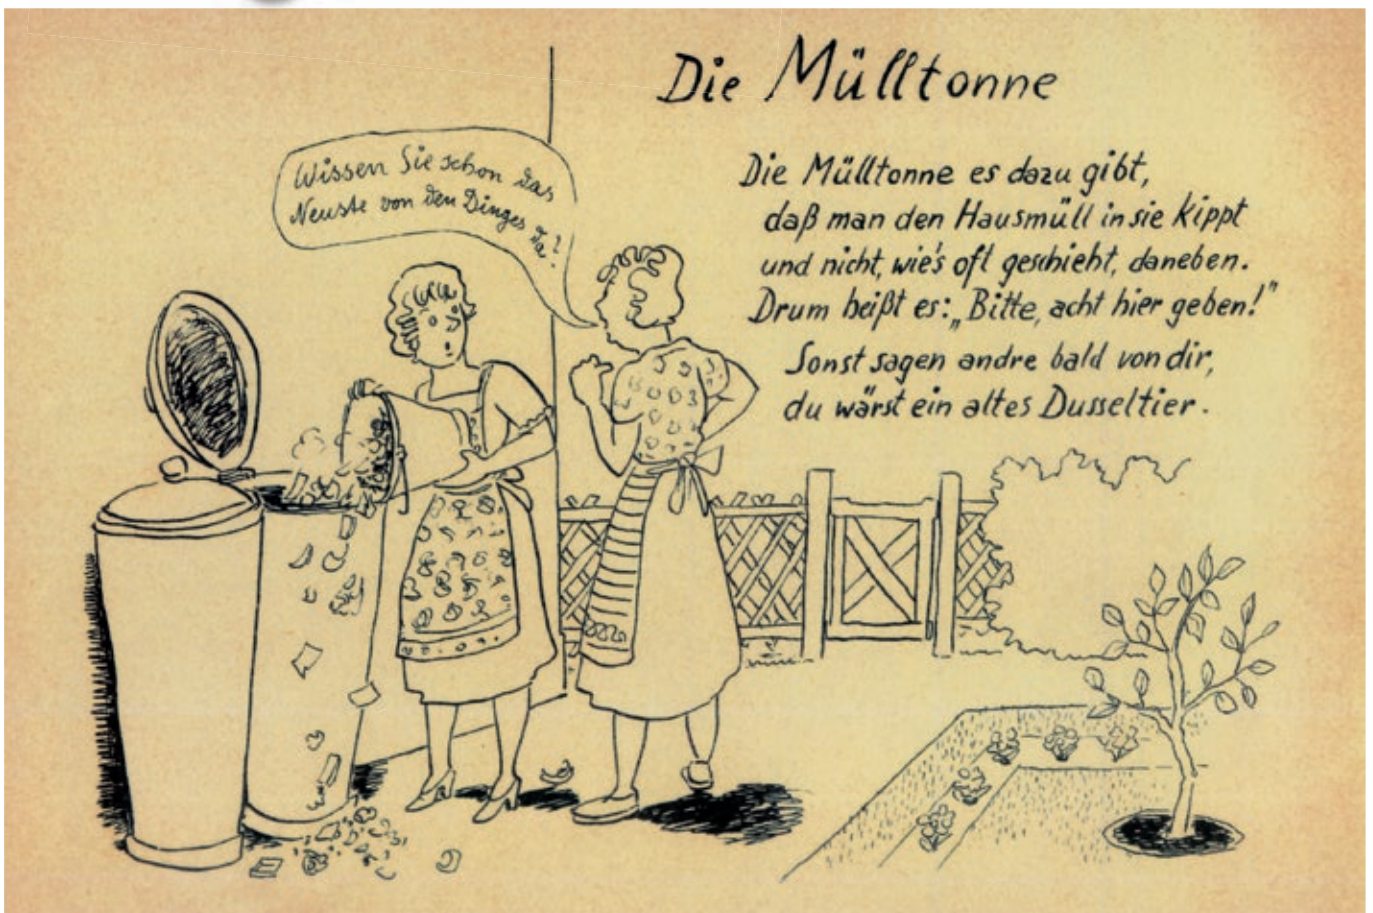 Die Mülltonne
Wissen Sie schon das
Neuste von den Dinges
da?
Die Mülltonne es dazu gibt,
daß man den Hausmüll in sie kippt
und nicht, wie's oft geschieht, daneben.
Drum heißt es: „Bitte, acht hier geben!"
Sonst sagen andre bald von dir,
du wärst ein altes Dusseltier.